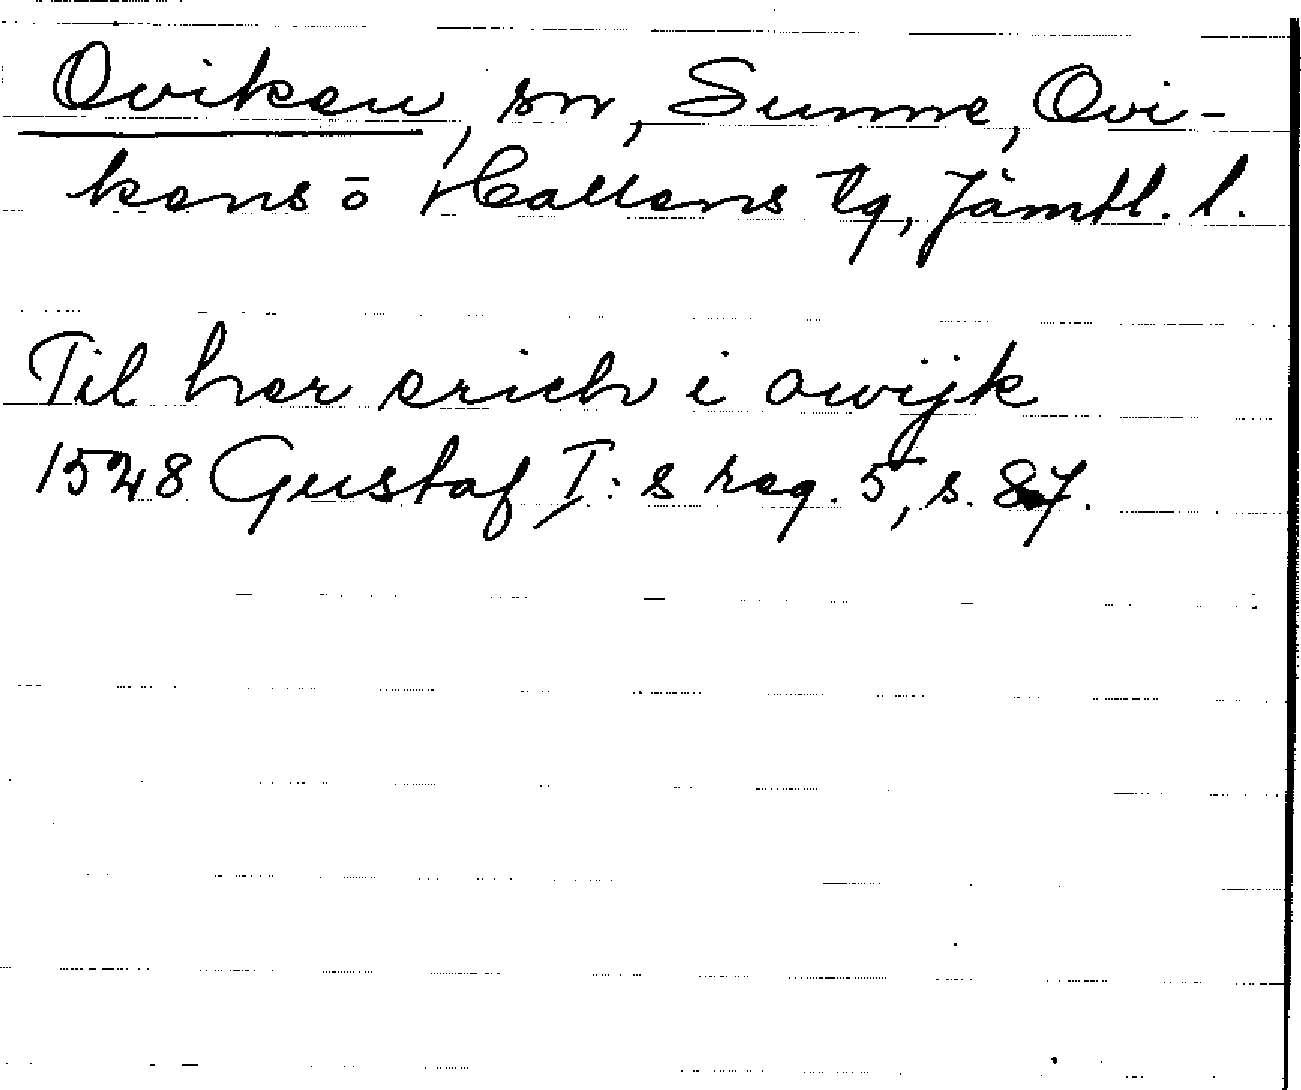 Oviken, sn, Sunne, Ovi-
kens o Hallens tg, Jämtl. l.
Til her erich i owijk
1548 Gustaf I:s reg. 5, s. 87.